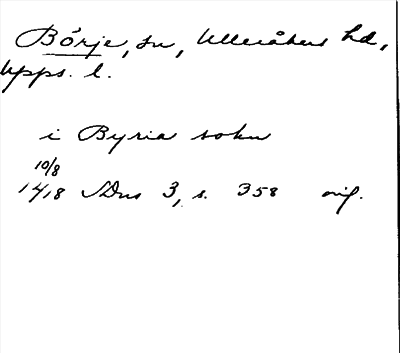 Börje, sn, Ulleråkers hd,
Upps. l.
i Byria sokn
10/8
1418 SDns 3, s. 358 orig.